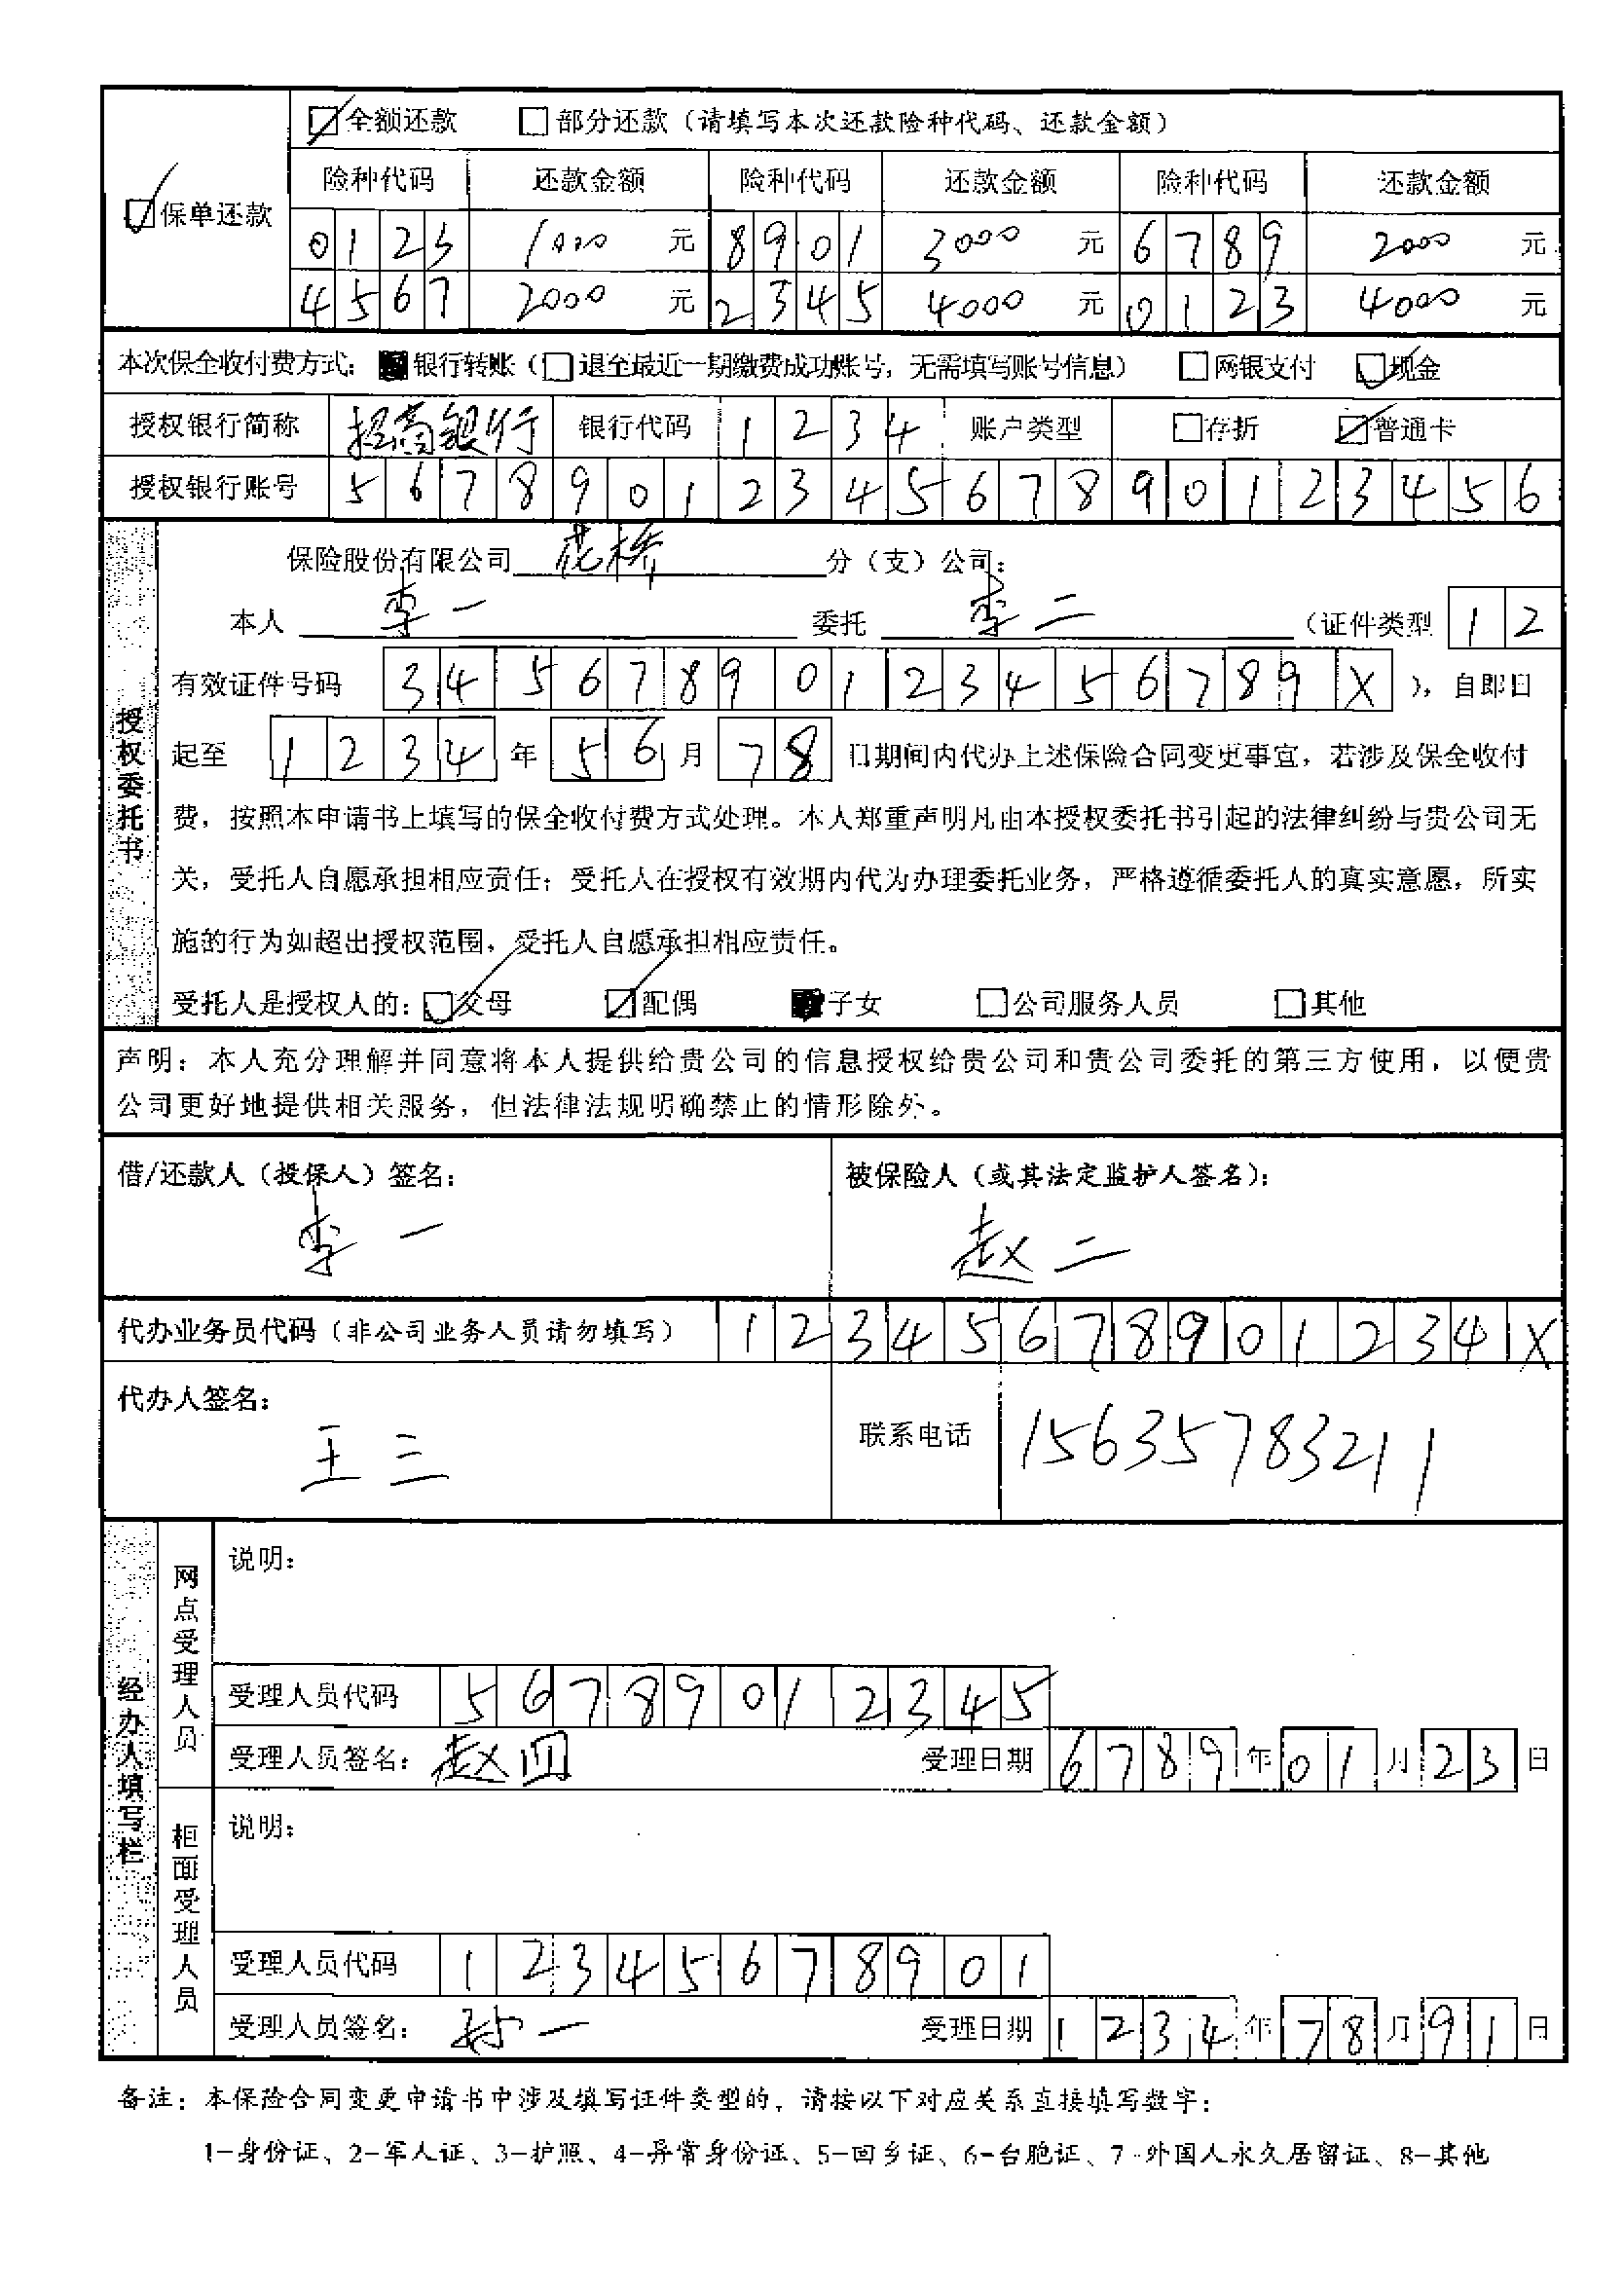 ☑全额还款 □部分还款（请填写本次还款险种代码、还款金额）
☑保单还款
险种代码 还款金额 险种代码 还款金额 险种代码 还款金额
0123 1000 元 8901 3000 元 6789 2000 元
4567 2000 元 2345 4000 元 0123 4000 元
本次保全收付费方式：■银行转账（□退至最近一期缴费成功账号，无需填写账号信息） □网银支付 ☑现金
授权银行简称 招商银行 银行代码 1234 账户类型 □存折 ☑普通卡
授权银行账号 5678901234567890123456
授权委托书
保险股份有限公司 花桥 分（支）公司：
本人 李一 委托 李二 （证件类型 12
有效证件号码 34567890123456789X ），自即日
起至 1234 年 56 月 78 日期间内代办上述保险合同变更事宜，若涉及保全收付
费，按照本申请书上填写的保全收付费方式处理。本人郑重声明凡由本授权委托书引起的法律纠纷与贵公司无
关，受托人自愿承担相应责任；受托人在授权有效期内代为办理委托业务，严格遵循委托人的真实意愿，所实
施的行为如超出授权范围，受托人自愿承担相应责任。
受托人是授权人的：☑父母 ☑配偶 ■子女 □公司服务人员 □其他
声明：本人充分理解并同意将本人提供给贵公司的信息授权给贵公司和贵公司委托的第三方使用，以便贵
公司更好地提供相关服务，但法律法规明确禁止的情形除外。
借/还款人（投保人）签名： 被保险人（或其法定监护人签名）：
李一 赵二
代办业务员代码（非公司业务人员请勿填写） 12345678901234X
代办人签名： 王三 联系电话 15635783211
经办人填写栏
网点受理人员
说明：
受理人员代码 56789012345
受理人员签名：赵四 受理日期 6789 年 01 月 23 日
柜面受理人员
说明：
受理人员代码 12345678901
受理人员签名：孙一 受理日期 1234 年 78 月 91 日
备注：本保险合同变更申请书中涉及填写证件类型的，请按以下对应关系直接填写数字：
1-身份证、2-军人证、3-护照、4-异常身份证、5-回乡证、6-台胞证、7-外国人永久居留证、8-其他